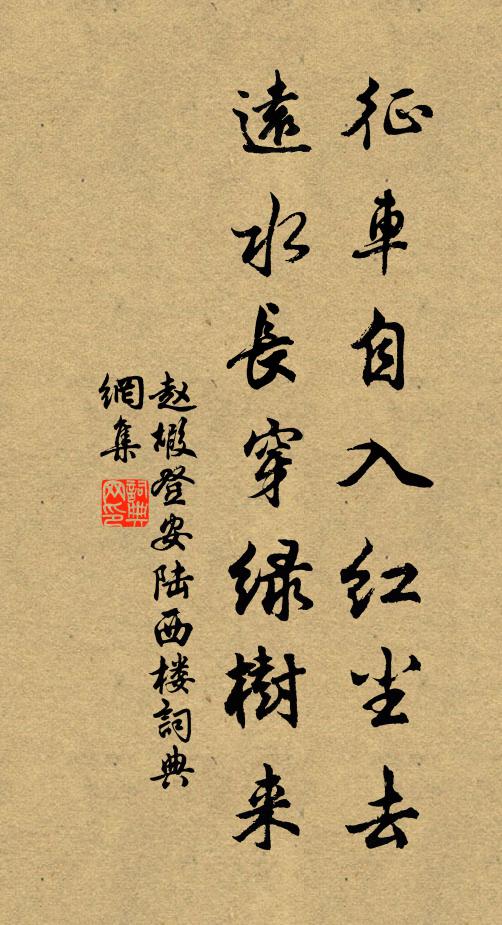 征車自入红尘去
遠水長穿绿樹来
赵嘏登安陆西楼詞典
網集
詞典
网印